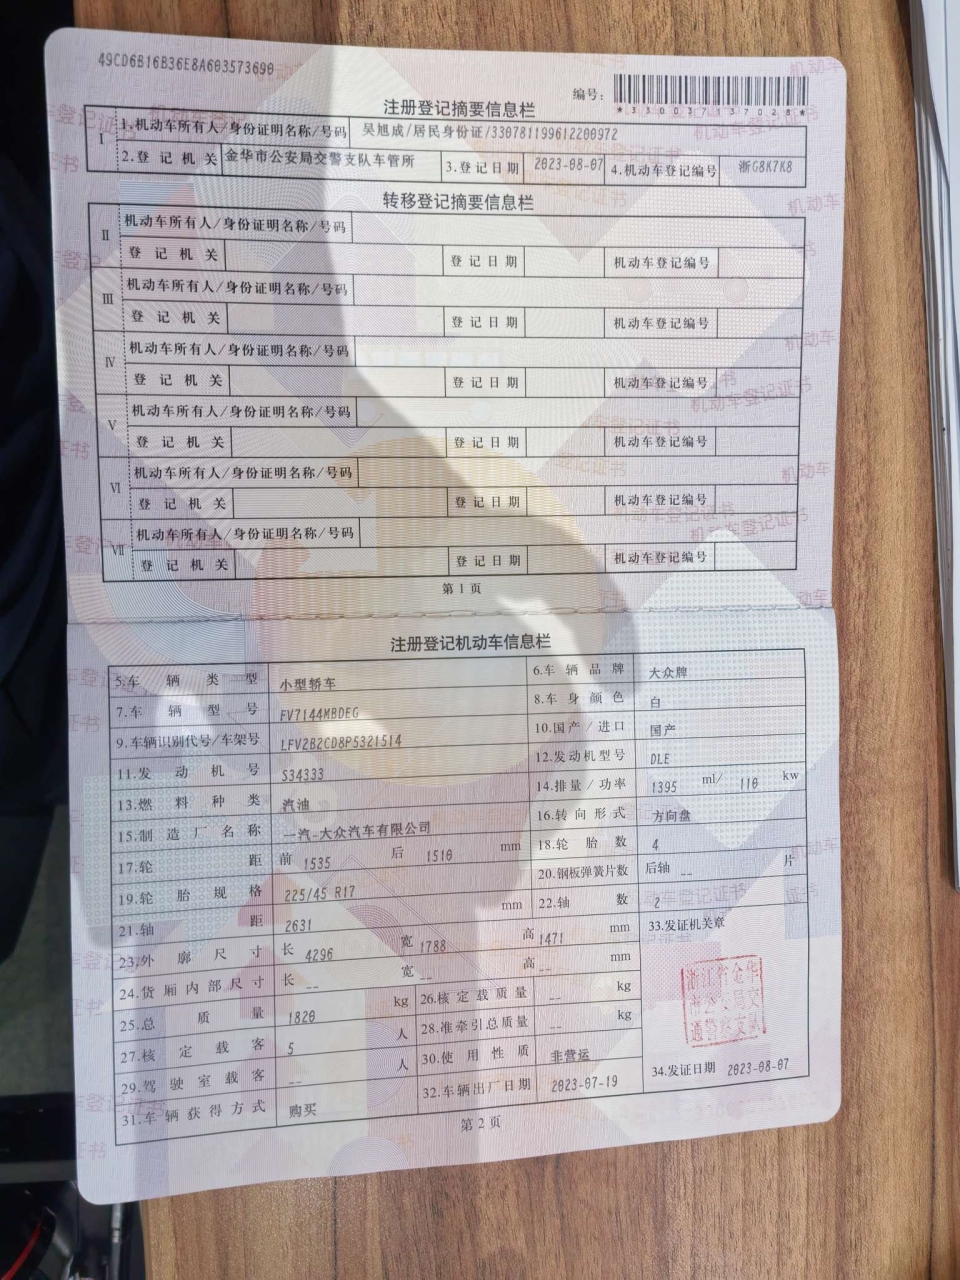 49CD6B16B36E8A603573690
编号:
*330037137028*
注册登记摘要信息栏
Ⅰ 1.机动车所有人/身份证明名称/号码 吴旭成/居民身份证/330781199612200972
2.登记机关 金华市公安局交警支队车管所 3.登记日期 2023-08-07 4.机动车登记编号 浙G8K7K8
转移登记摘要信息栏
Ⅱ 机动车所有人/身份证明名称/号码
登记机关 登记日期 机动车登记编号
Ⅲ 机动车所有人/身份证明名称/号码
登记机关 登记日期 机动车登记编号
Ⅳ 机动车所有人/身份证明名称/号码
登记机关 登记日期 机动车登记编号
Ⅴ 机动车所有人/身份证明名称/号码
登记机关 登记日期 机动车登记编号
Ⅵ 机动车所有人/身份证明名称/号码
登记机关 登记日期 机动车登记编号
Ⅶ 机动车所有人/身份证明名称/号码
登记机关 登记日期 机动车登记编号
第1页
注册登记机动车信息栏
5.车辆类型 小型轿车 6.车辆品牌 大众牌
7.车辆型号 FV7144MBDEG 8.车身颜色 白
9.车辆识别代号/车架号 LFV2B2CD8P5321514 10.国产/进口 国产
11.发动机号 S34333 12.发动机型号 DLE
13.燃料种类 汽油 14.排量/功率 1395 ml/ 110 kw
15.制造厂名称 一汽-大众汽车有限公司 16.转向形式 方向盘
17.轮距 前 1535 后 1510 mm 18.轮胎数 4
19.轮胎规格 225/45 R17 20.钢板弹簧片数 后轴 -- 片
21.轴距 2631 mm 22.轴数 2
23.外廓尺寸 长 4296 宽 1788 高 1471 mm 33.发证机关章
24.货厢内部尺寸 长 -- 宽 -- 高 -- mm
25.总质量 1820 kg 26.核定载质量 -- kg
27.核定载客 5 人 28.准牵引总质量 -- kg
29.驾驶室载客 -- 人 30.使用性质 非营运
31.车辆获得方式 购买 32.车辆出厂日期 2023-07-19 34.发证日期 2023-08-07
浙江省金华
市公安局交
通警察支队
第2页